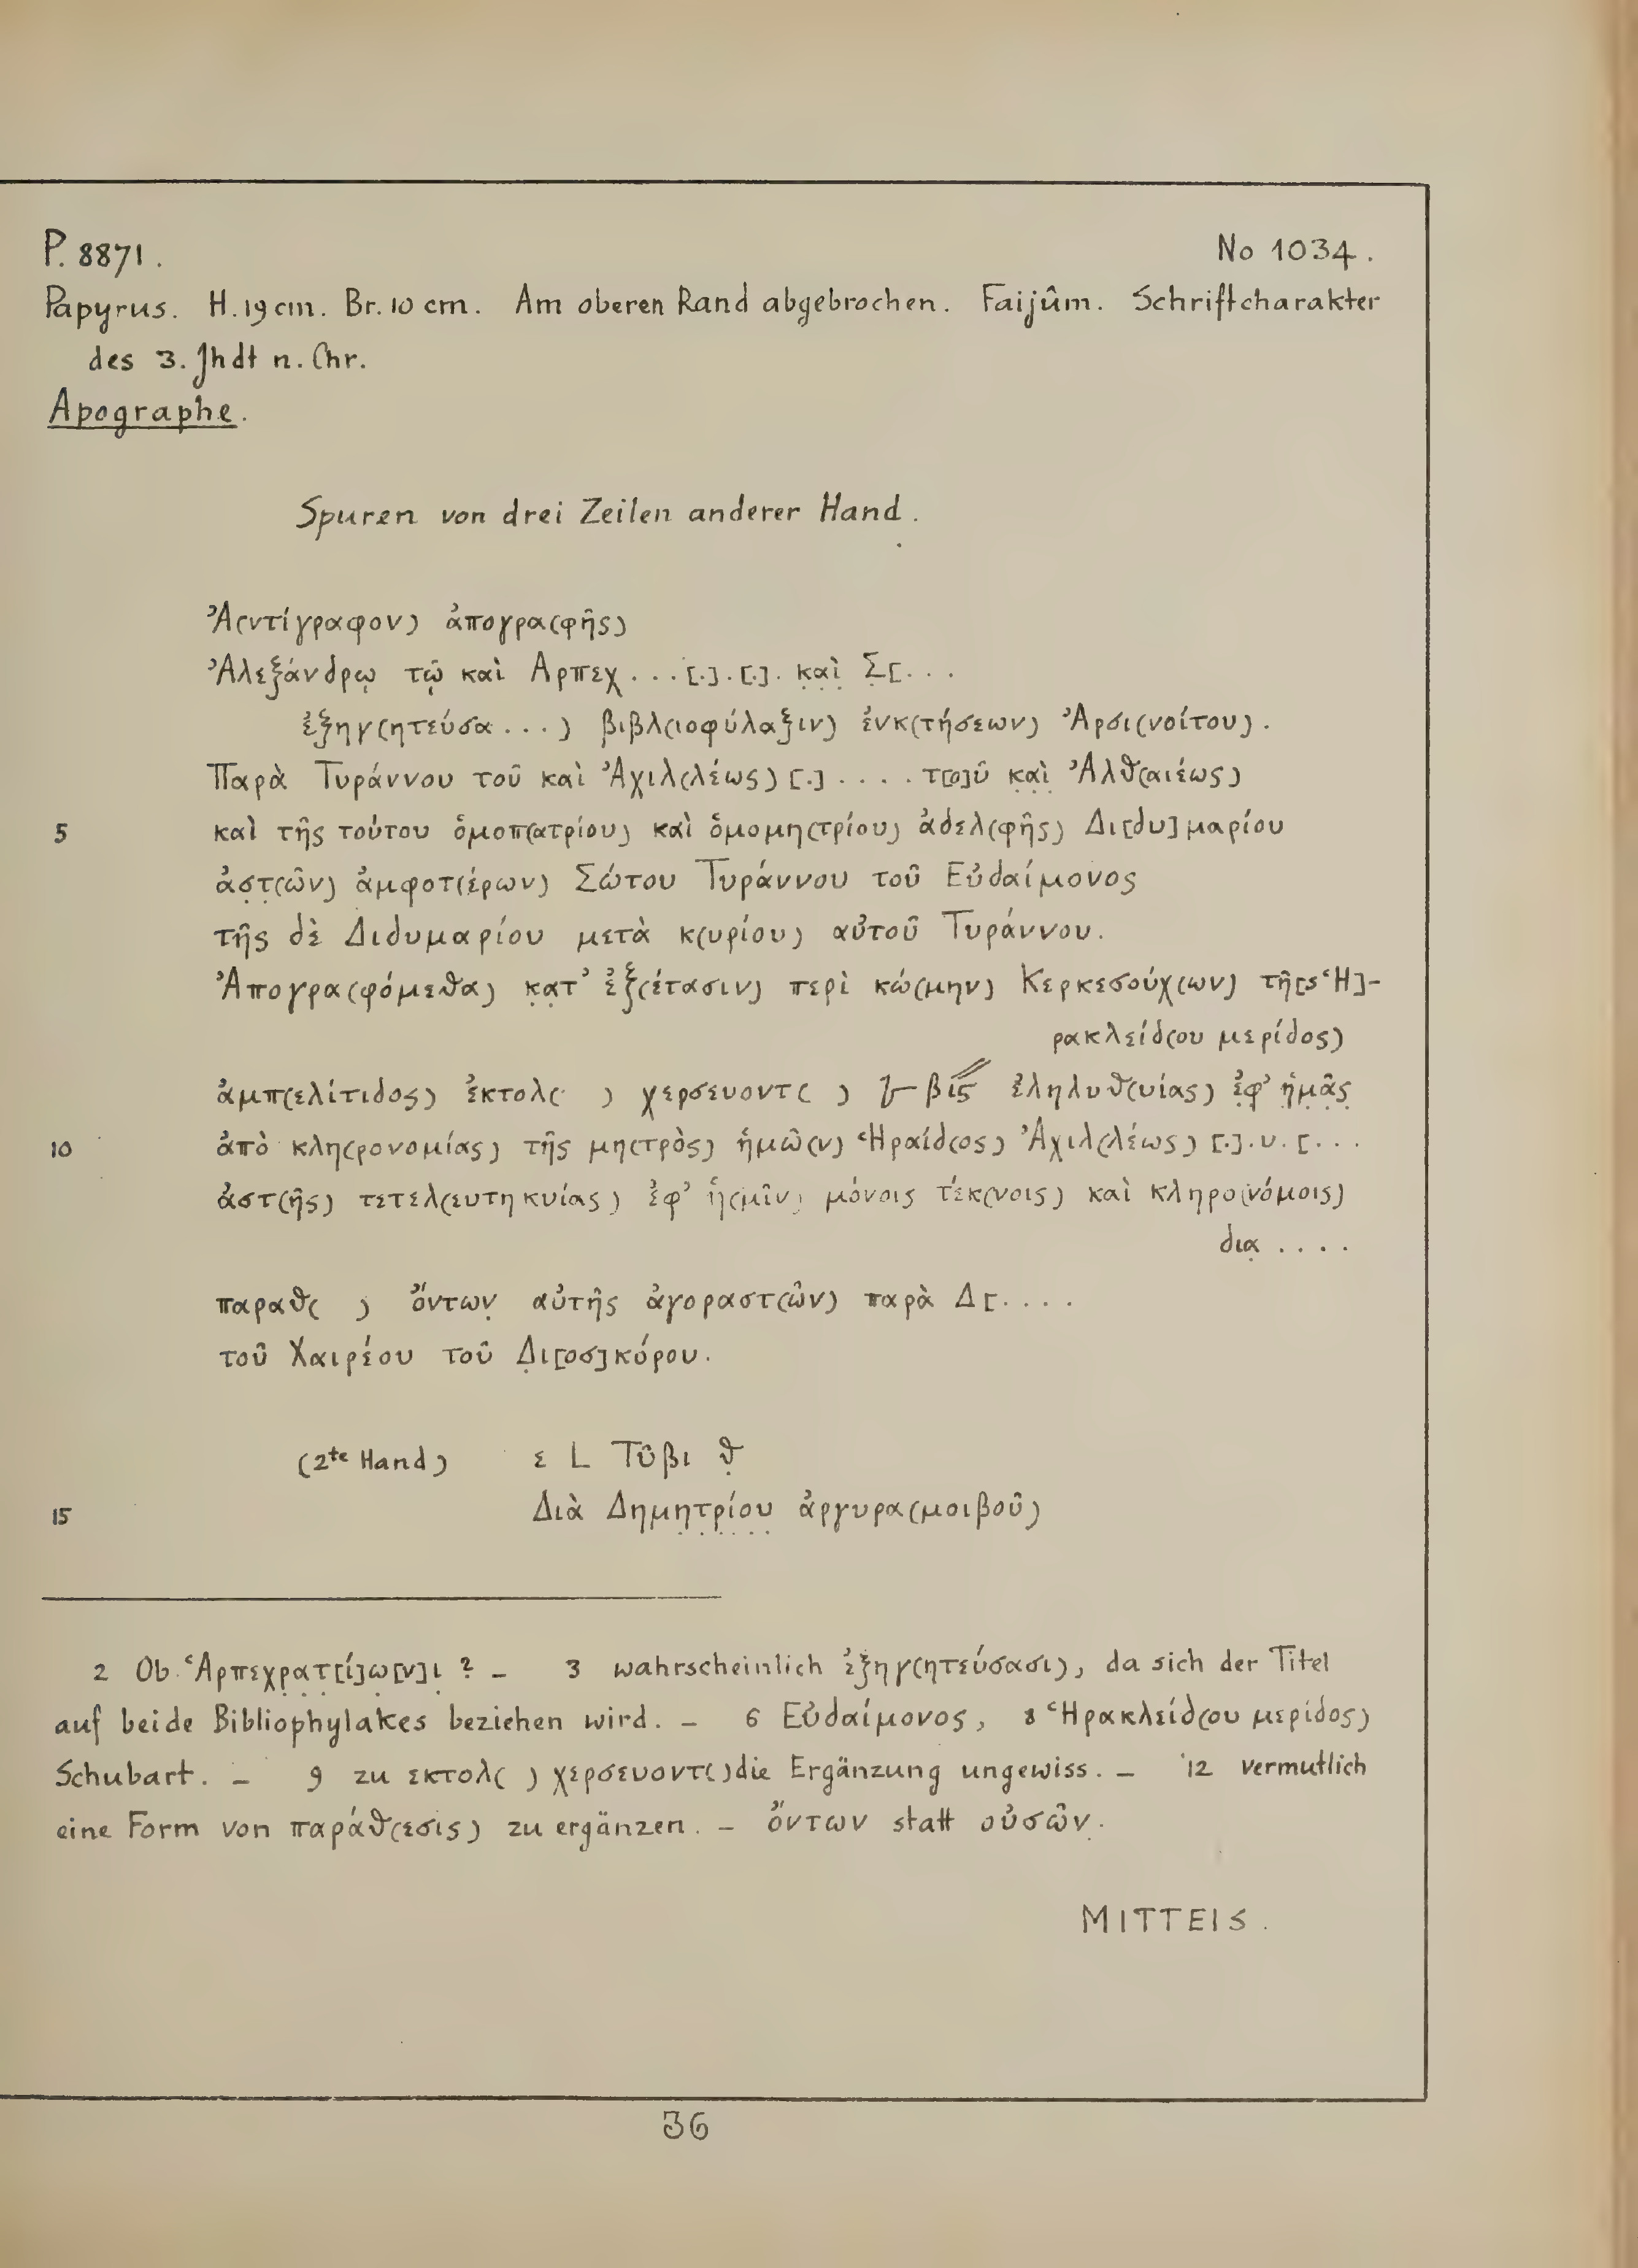 P. 8871. No 1034.
Papyrus. H. 19 cm. Br. 10 cm. Am oberen Rand abgebrochen. Faijûm. Schriftcharakter
des 3. Jhdt n. Chr.
Apographe.
Spuren von drei Zeilen anderer Hand.
Ἀ(ντίγραφον) ἀπογρα(φῆς)
Ἀλεξάνδρῳ τῷ καὶ Αρπεχ...[.].[.]. κ̣α̣ὶ̣ Σ̣[...
ἐξηγ(ητεύσα...) βιβλ(ιοφύλαξιν) ἐνκ(τήσεων) Ἀρσι(νοίτου).
Παρὰ Τυράννου τοῦ καὶ Ἀχιλ(λέως) [.].... τ[ο]ῦ κ̣α̣ὶ̣ Ἀλθ(αιέως)
5 καὶ τῆς τούτου ὁμοπ(ατρίου) καὶ ὁμομη(τρίου) ἀδελ(φῆς) Δι[δυ]μαρίου
ἀσ̣τ̣(ῶν) ἀμφοτ(έρων) Σώτου Τυράννου τοῦ Εὐδαίμονος
τῆς δὲ Διδυμαρίου μετὰ κ(υρίου) αὐτοῦ Τυράννου.
Ἀπογρα(φόμεθα) κ̣α̣τ' ἐξ̣(έτασιν) περὶ κώ(μην) Κερκεσούχ(ων) τῆ[ς Ἡ]-
ρακλείδ(ου μερίδος)
ἀμπ(ελίτιδος) ἐκτολ( ) χερσευοντ( ) 𐅵 βις ἐληλυθ(υίας) ἐ̣φ̣' ἡ̣μ̣ᾶ̣ς̣
10 ἀπὸ κλη(ρονομίας) τῆς μη(τρὸς) ἡμῶ(ν) Ἡραίδ(ος) Ἀχιλ(λέως) [.].υ.[...
ἀστ(ῆς) τετελ(ευτηκυίας) ἐφ' ἡ(μῖν) μόνοις τέκ(νοις) καὶ κληρο(νόμοις)
δια̣....
παραθ( ) ὄντων̣ αὐτῆς ἀγοραστ(ῶν) παρὰ Δ[....
τοῦ Χαιρέου τοῦ Δ̣ι[οσ]κόρου.
(2te Hand) ε L Τῦβι θ̣
15 Διὰ Δημη̣τ̣ρ̣ί̣ο̣υ̣ ἀργυρα(μοιβοῦ)
2 Ob Ἁρπεχρ̣α̣τ̣[ί]ω̣[ν]ι̣ ? – 3 wahrscheinlich ἐξηγ(ητεύσασι), da sich der Titel
auf beide Bibliophylakes beziehen wird. – 6 Εὐδαίμονος, 8 Ἡρακλείδ(ου μερίδος)
Schubart. – 9 zu εκτολ( ) χερσευοντ( ) die Ergänzung ungewiss. – 12 vermutlich
eine Form von παράθ(εσις) zu ergänzen. – ὄντων statt οὐσῶν.
MITTEIS.
36